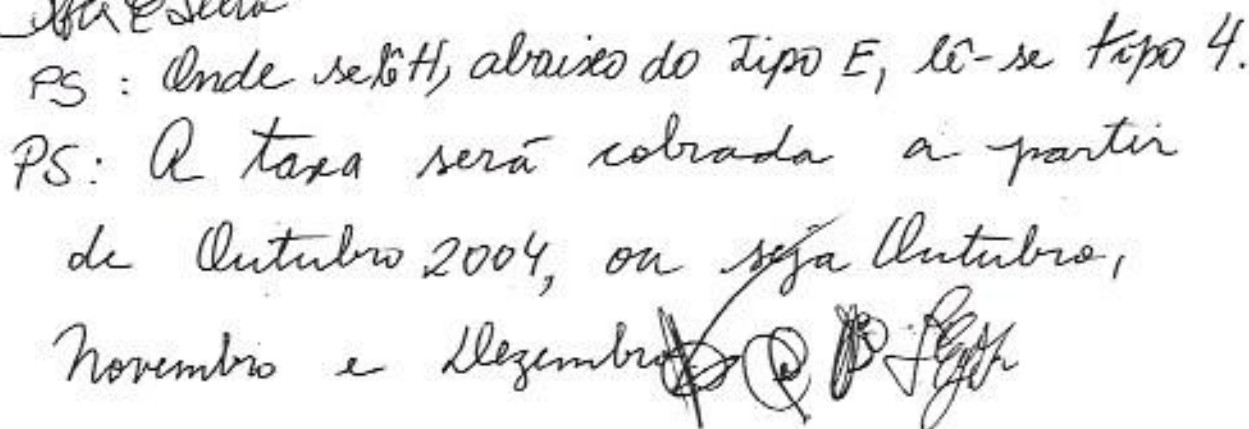 PS: Onde se lê H, abaixo do Tipo E, lê-se tipo 4.
PS: A taxa será cobrada a partir
de Outubro 2004, ou seja Outubro,
Novembro e Dezembro